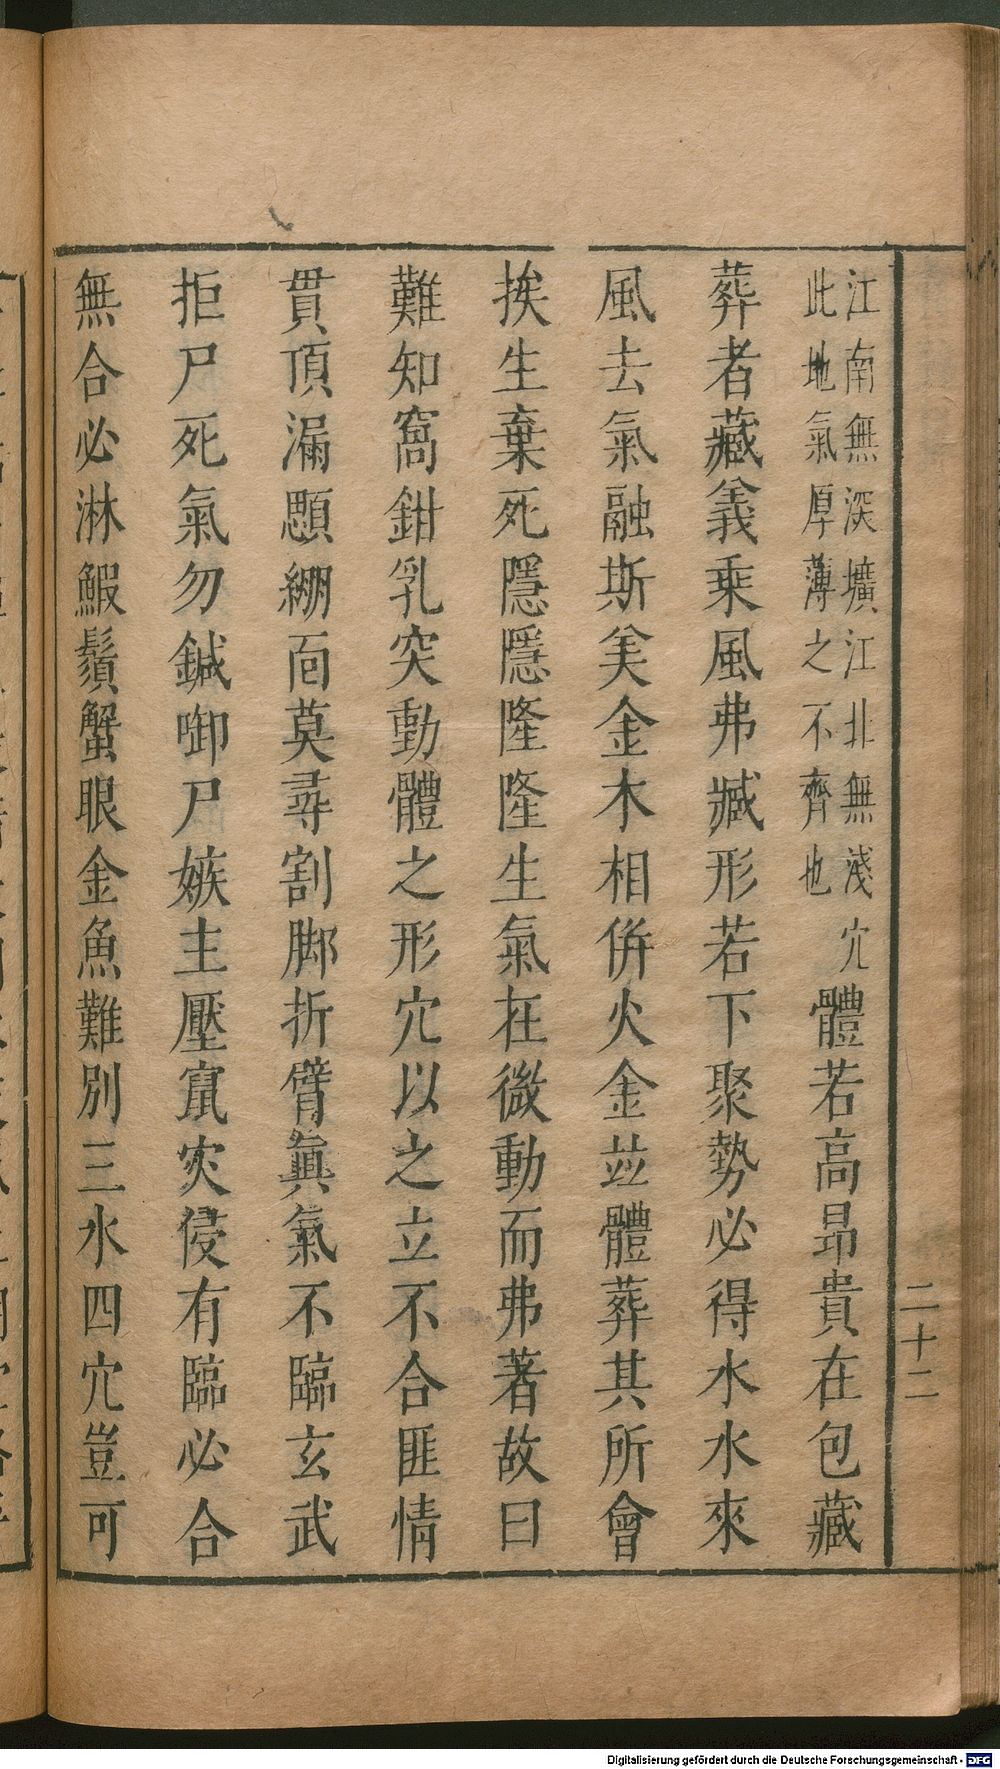 江南無深壙江北無淺穴
此地氣厚薄之不齊也
體若高昂貴在包藏
葬者藏義乘風弗臧形若下聚勢必得水水來
風去氣融斯美金木相倂火金並體葬其所會
挨生棄死隱隱隆隆生氣在微動而弗著故曰
難知窩鉗乳突動體之形穴以之立不合匪情
貫頂漏顋綳面莫尋割脚折臂眞氣不臨玄武
拒尸死氣勿鍼啣尸嫉主壓竄灾侵有臨必合
無合必淋鰕鬚蟹眼金魚難別三水四穴豈可
二十二
Digitalisierung gefördert durch die Deutsche Forschungsgemeinschaft - DFG